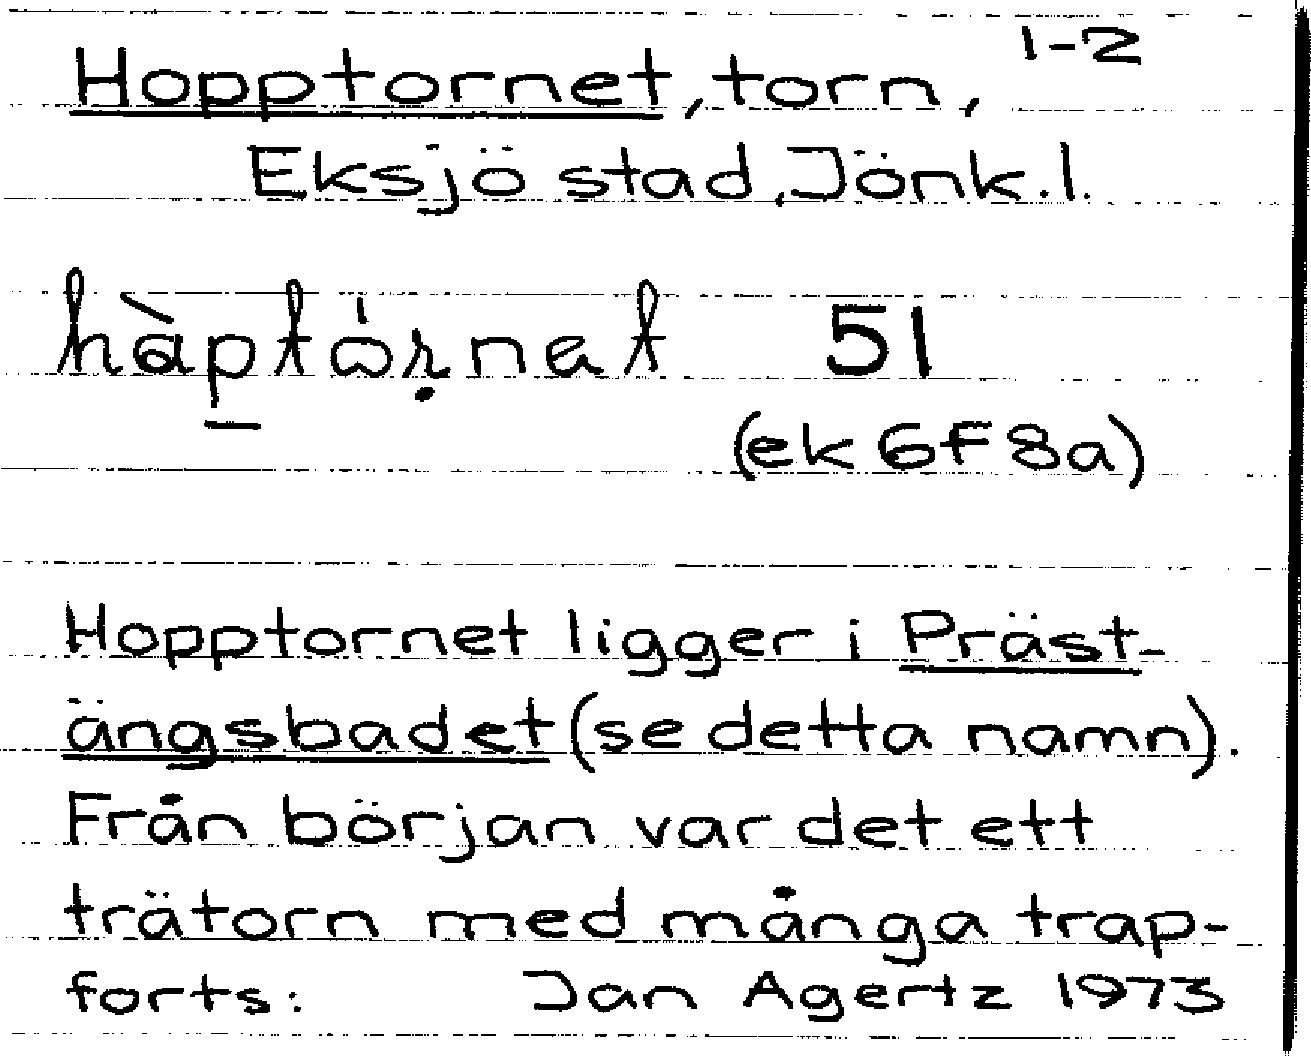 1-2
Hopptornet, torn,
Eksjö stad, Jönk. l.
51
(ek 6F 8a)
Hopptornet ligger i Präst-
ängsbadet (se detta namn).
Från början var det ett
trätorn med många trap-
forts: Jan Agertz 1973